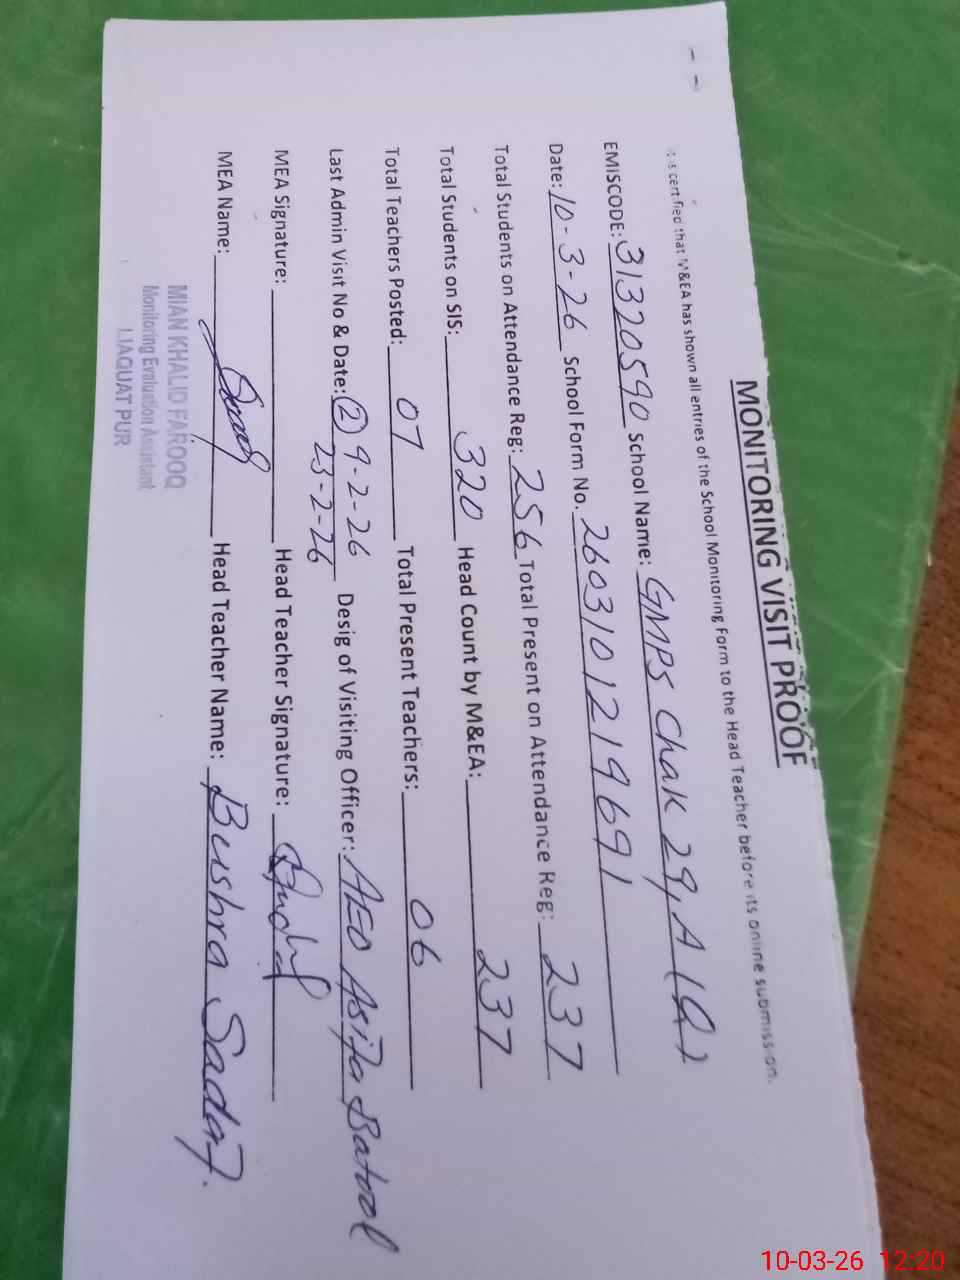 MONITORING VISIT PROOF
It is certified that M&EA has shown all entries of the School Monitoring Form to the Head Teacher before its online submission.
EMISCODE: 31320590 School Name: GMPS Chak 29, A (Q)
Date: 10-3-26 School Form No. 2603101219691
Total Students on Attendance Reg: 256 Total Present on Attendance Reg: 237
Total Students on SIS: 320 Head Count by M&EA: 237
Total Teachers Posted: 07 Total Present Teachers: 06
Last Admin Visit No & Date: (2) 9-2-26 Desig of Visiting Officer: AEO Asifa Batool
23-2-26
MEA Signature: Head Teacher Signature:
MEA Name: Head Teacher Name: Bushra Sadaf.
MIAN KHALID FAROOQ
Monitoring Evaluation Assistant
LIAQUAT PUR
10-03-26 12:20